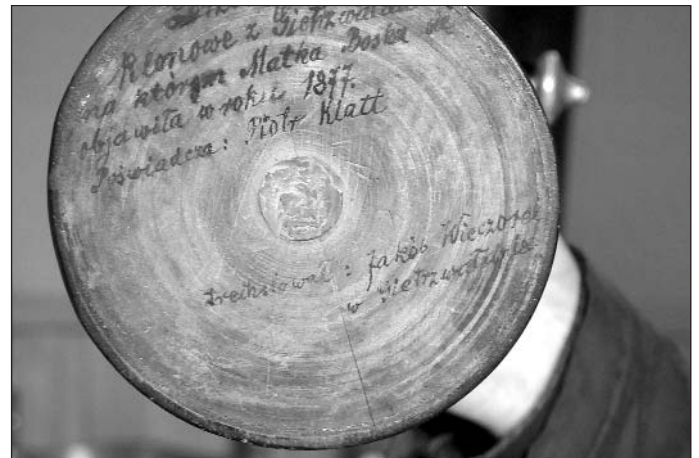 Klonowe z Gietrzwałdu
na którym Matka Boska się
objawiła w roku 1877.
Poświadcza: Piotr Klatt
trechslował: Jakób Wieczorek
w Gietrzwałdzie